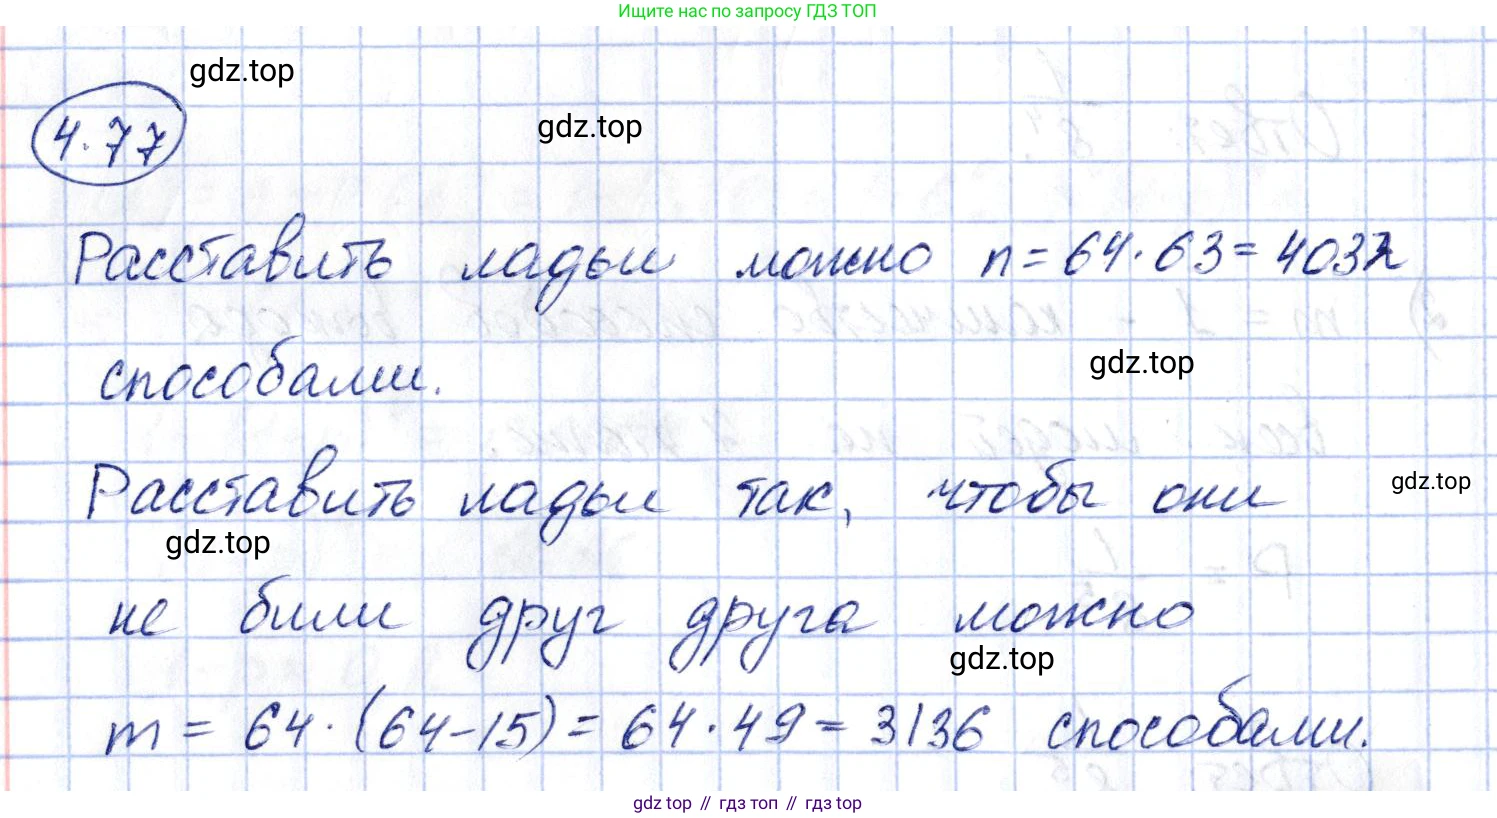 Ищите нас по запросу ГДЗ ТОП
gdz.top
4.77
gdz.top
Расставить ладьи можно n = 64 · 63 = 4032
способами.
gdz.top
Расставить ладьи так, чтобы они
gdz.top
gdz.top
не били друг друга можно
gdz.top
m = 64 · (64-15) = 64 · 49 = 3136 способами.
gdz top // гдз топ // гдз top